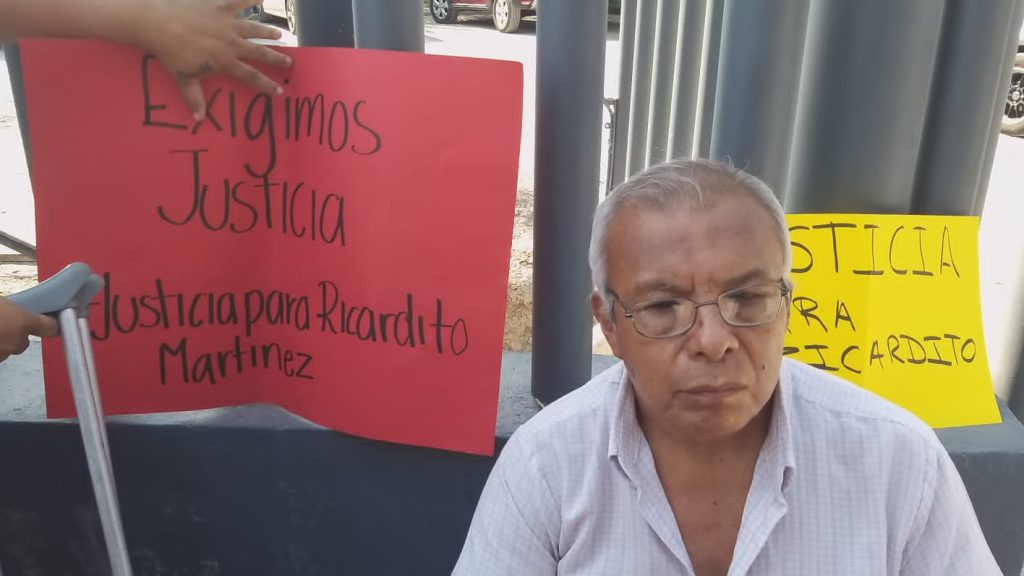 Exigimos
Justicia
#Justicia para Ricardito
Martinez
STICIA
RA
RICARDITO